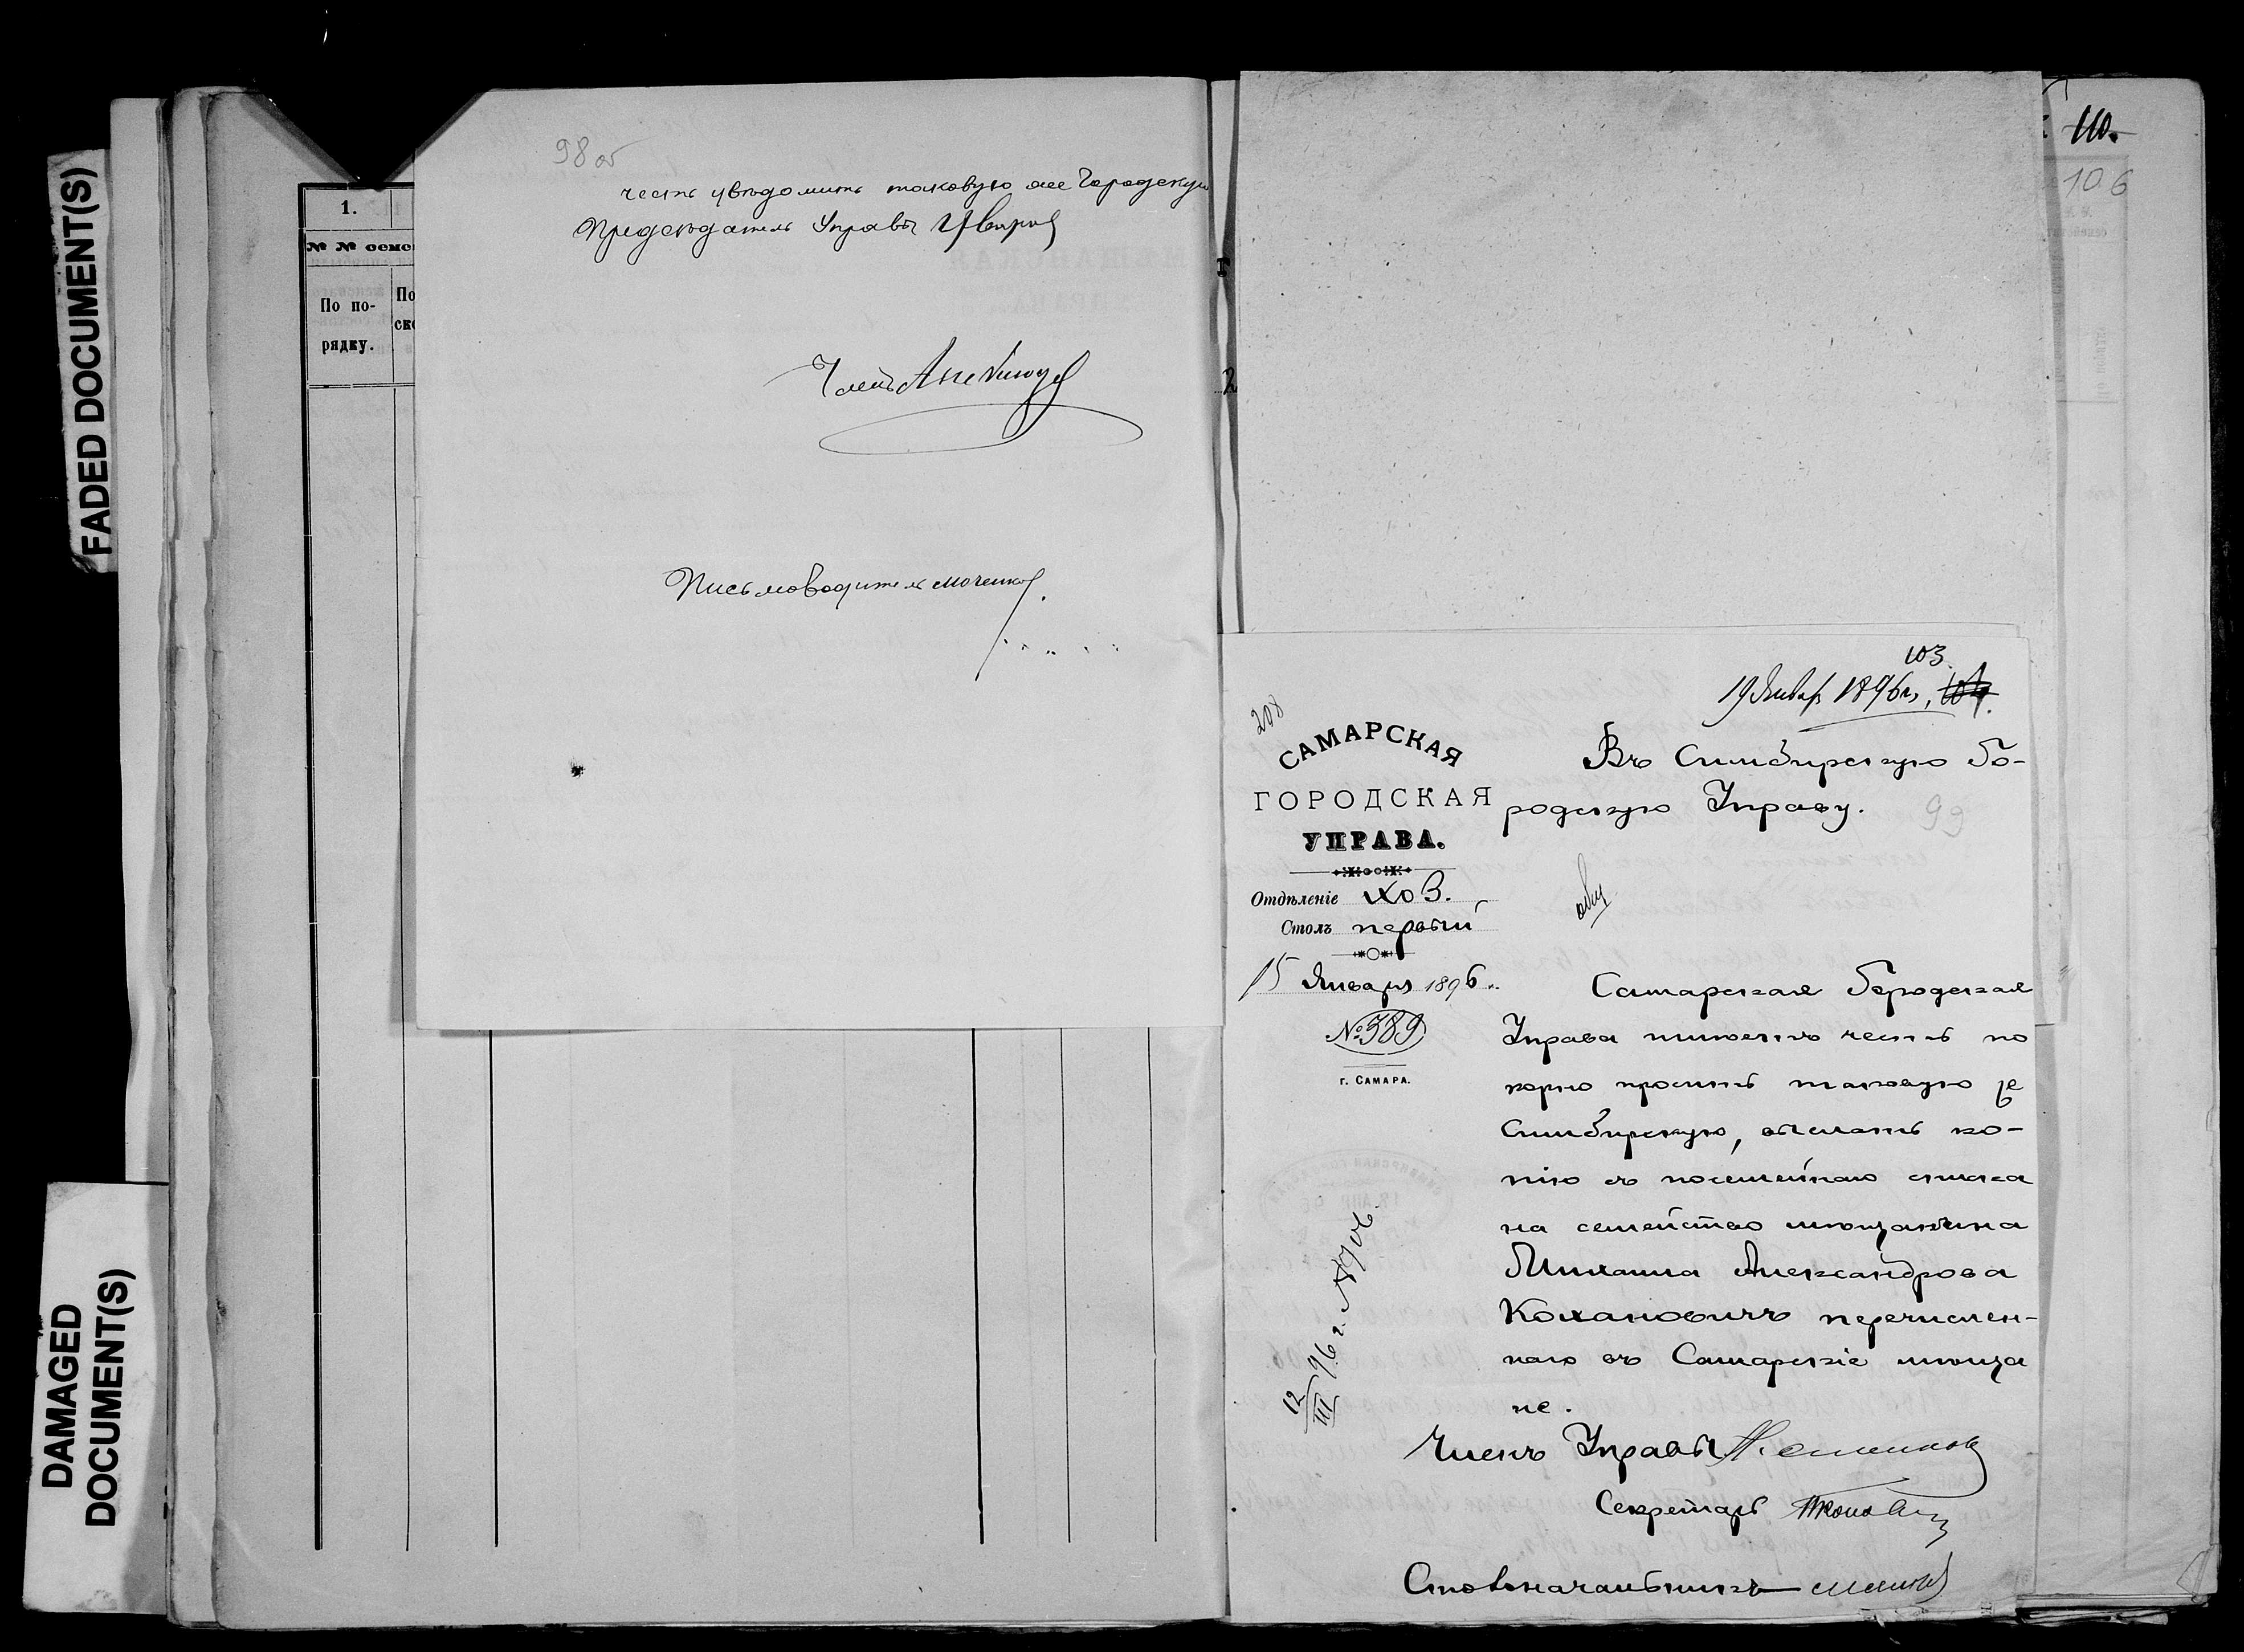 FADED DOCUMENT(S)
DAMAGED
DOCUMENT(S)
1.
№ № семе
По по-
рядку.
По
ско
98 об
честь увѣдомить таковую же Городскую
Предсѣдатель Управы
Членъ
Письмоводитель
110.
106
103.
19 Январ 1896 г.
208
САМАРСКАЯ
ГОРОДСКАЯ
УПРАВА.
Отдѣленіе Хоз.
Столъ первый
15 Января 1896 г.
№ 389
г. САМАРА.
12/III 96 г. №
Въ Симбирскую Го-
родскую Управу.
99
Самарская Городская
Управа имѣетъ честь по
корно просить таковую же
Симбирскую, выслать ко-
пію съ посемейнаго списка
на семейство мѣщанина
Михаила Александрова
Колановичъ перечислен-
наго въ Самарскіе мѣща
не.
Членъ Управы
Секретарь
Столоначальникъ